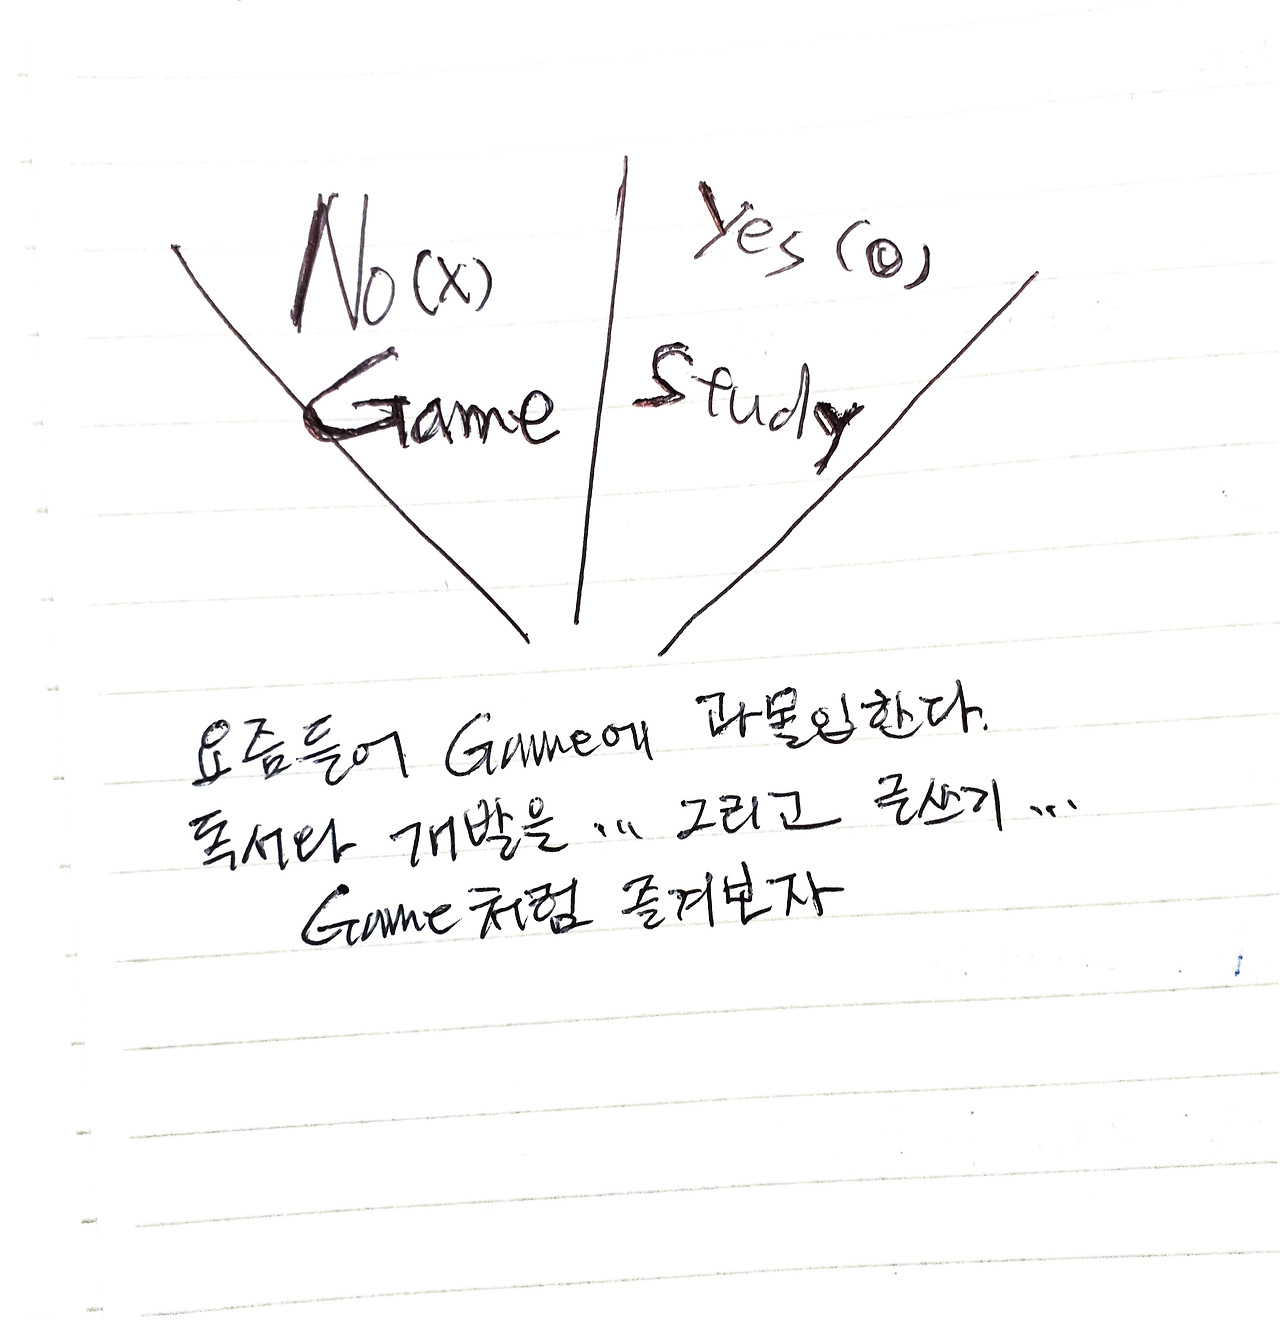 No (X)
Yes (◎)
Game
Study
요즘들어 Game에 과몰입한다.
독서와 개발을 ... 그리고 글쓰기 ...
Game처럼 즐겨보자